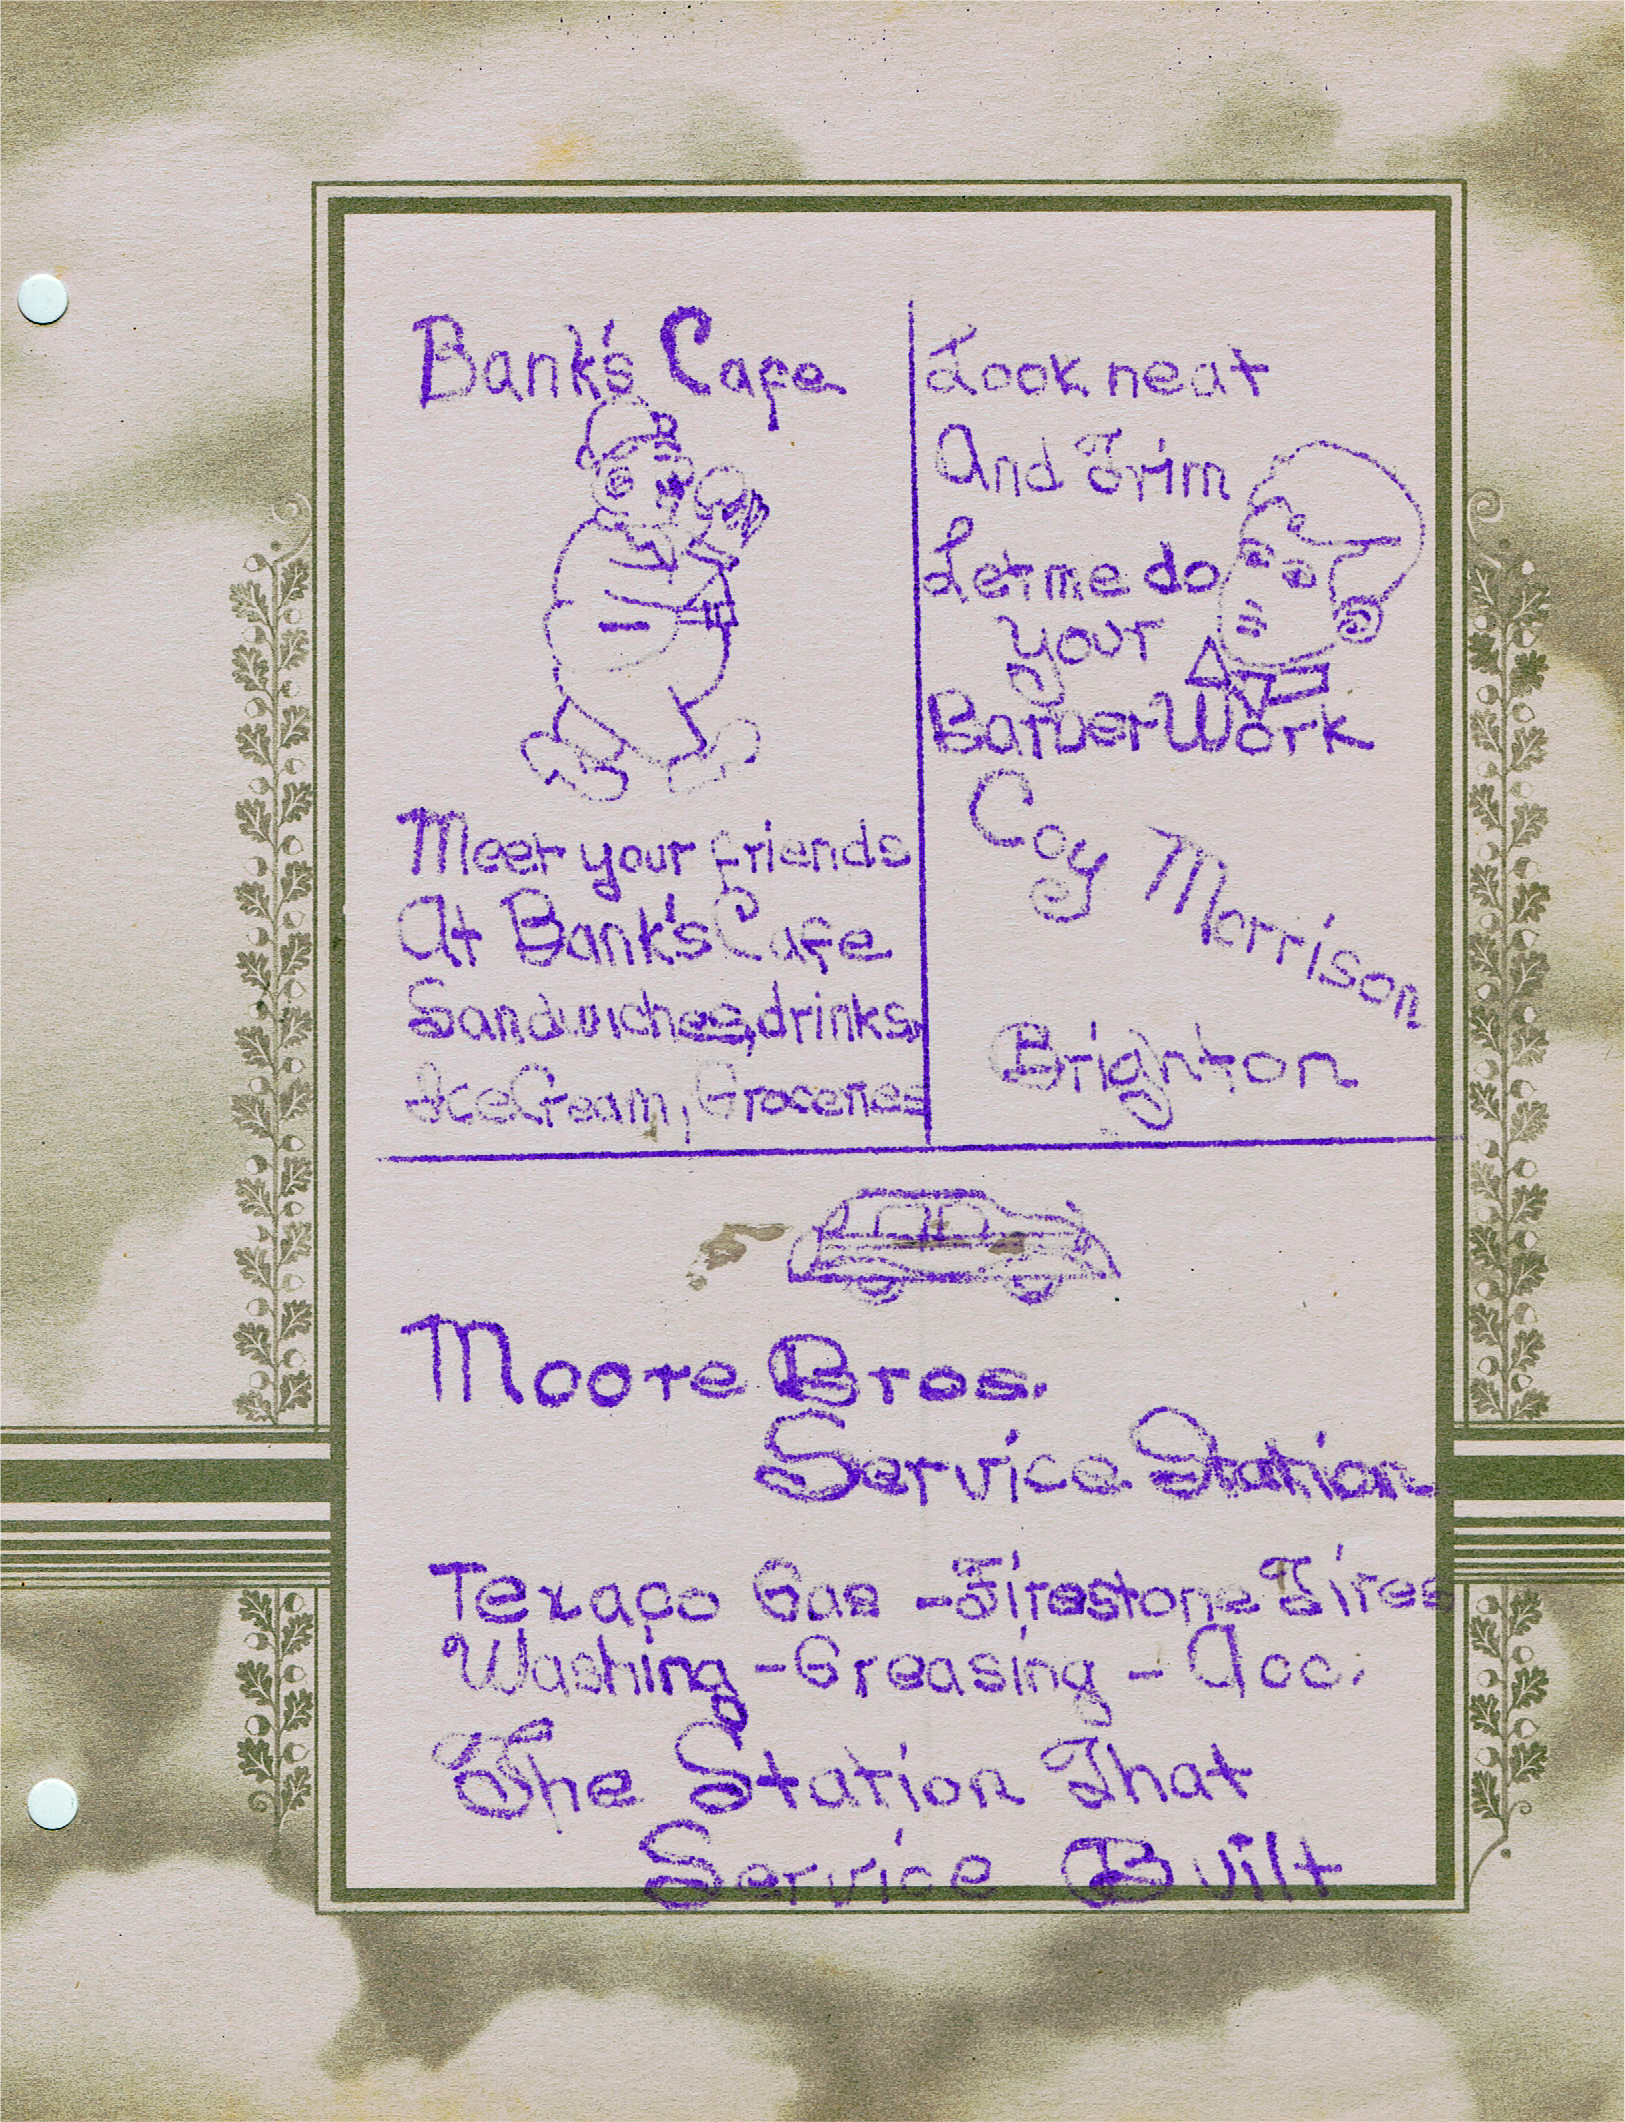 Bank's Cafe
Meet your friends
At Bank's Cafe
Sandwiches, drinks,
Ice Cream, Groceries
Look neat
And Trim
Let me do
your
Barber Work
Coy Morrison
Brighton
Moore Bros.
Service Station
Texaco Gas - Firestone Tires
Washing - Greasing - Acc.
The Station That
Service Built